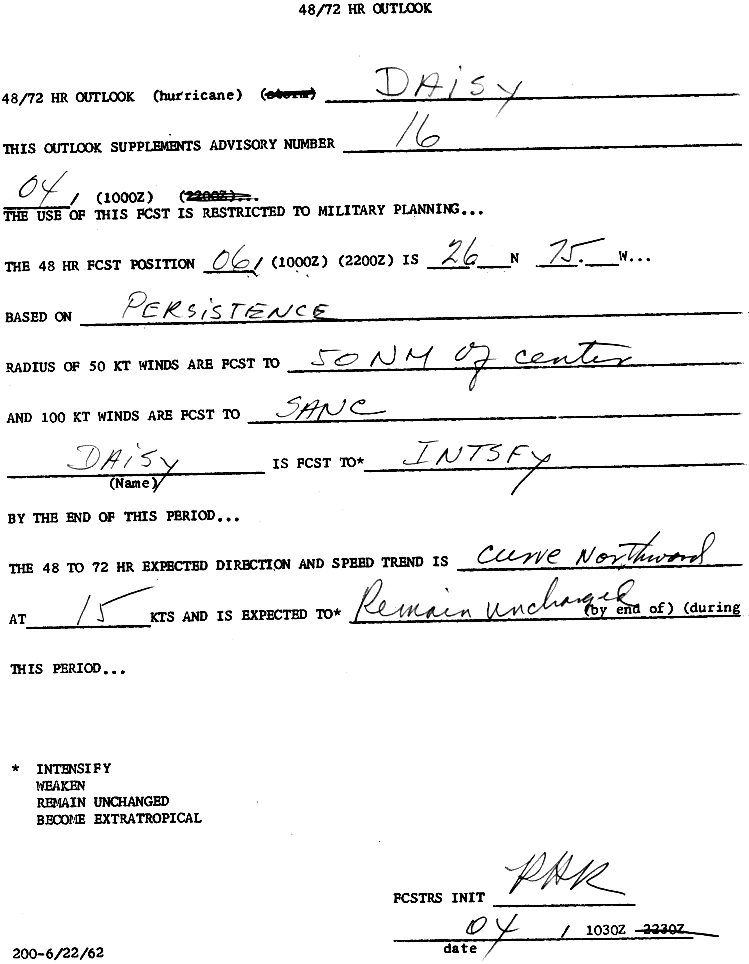 48/72 HR OUTLOOK
48/72 HR OUTLOOK (hurricane) (storm) DAISY
THIS OUTLOOK SUPPLEMENTS ADVISORY NUMBER 16
04/ (1000Z) (2200Z)...
THE USE OF THIS FCST IS RESTRICTED TO MILITARY PLANNING...
THE 48 HR FCST POSITION 06/ (1000Z) (2200Z) IS 26 N 75. W...
BASED ON PERSISTENCE
RADIUS OF 50 KT WINDS ARE FCST TO 50 NM of center
AND 100 KT WINDS ARE FCST TO SANC
DAISY IS FCST TO* INTSFY
(Name)
BY THE END OF THIS PERIOD...
THE 48 TO 72 HR EXPECTED DIRECTION AND SPEED TREND IS curve Northward
AT 15 KTS AND IS EXPECTED TO* Remain unchanged (by end of) (during
THIS PERIOD...
* INTENSIFY
WEAKEN
REMAIN UNCHANGED
BECOME EXTRATROPICAL
FCSTRS INIT
04 / 1030Z 2230Z
date
200-6/22/62